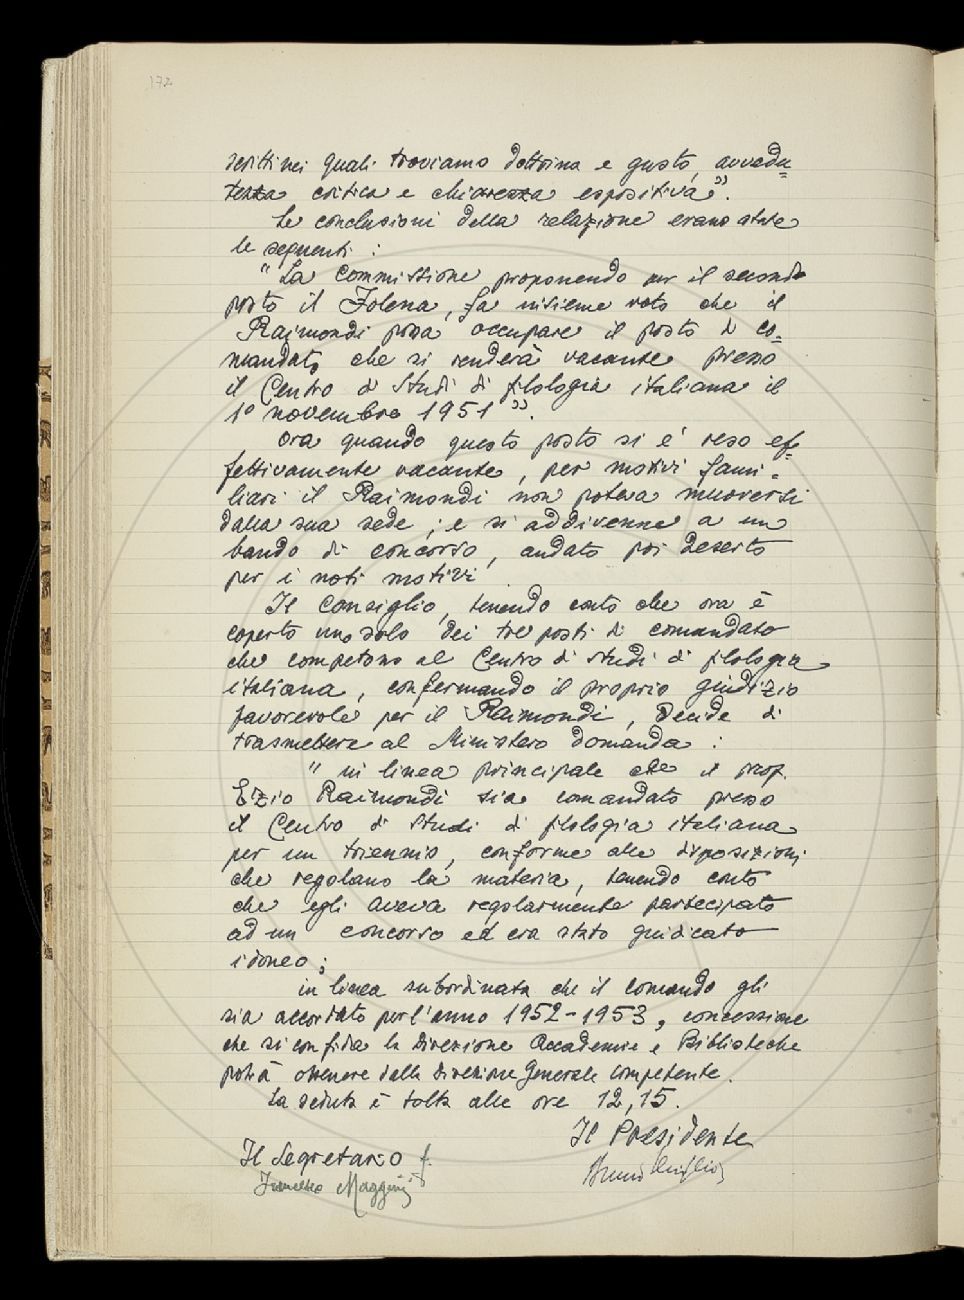 172
scritti nei quali troviamo dottrina e gusto, avvedu=
tezza critica e chiarezza espositiva".
Le conclusioni della relazione erano state
le seguenti :
"La Commissione proponendo per il secondo
posto il Folena, fa insieme voto che il
Raimondi possa occupare il posto di co=
mandato che si renderà vacante presso
il Centro di Studi di filologia italiana il
1° novembre 1951".
Ora quando questo posto si è reso ef=
fettivamente vacante, per motivi fami=
liari il Raimondi non poteva muoversi
dalla sua sede; e si addivenne a un
bando di concorso, andato poi deserto
per i noti motivi.
Il Consiglio, tenendo conto che ora è
coperto uno solo dei tre posti di comandato
che competono al Centro di studi di filologia
italiana, confermando il proprio giudizio
favorevole per il Raimondi, decide di
trasmettere al Ministero domanda :
"in linea principale che il prof.
Ezio Raimondi sia comandato presso
il Centro di studi di filologia italiana
per un triennio, conforme alle disposizioni
che regolano la materia, tenendo conto
che egli aveva regolarmente partecipato
ad un concorso ed era stato giudicato
idoneo;
in linea subordinata che il comando gli
sia accordato per l'anno 1952-1953, concessione
che si confida la Direzione Accademie e Biblioteche
potrà ottenere dalla Direzione Generale competente.
La seduta è tolta alle ore 12,15.
Il Presidente
Il Segretario f.
Bruno Migliorini
Francesco Maggini